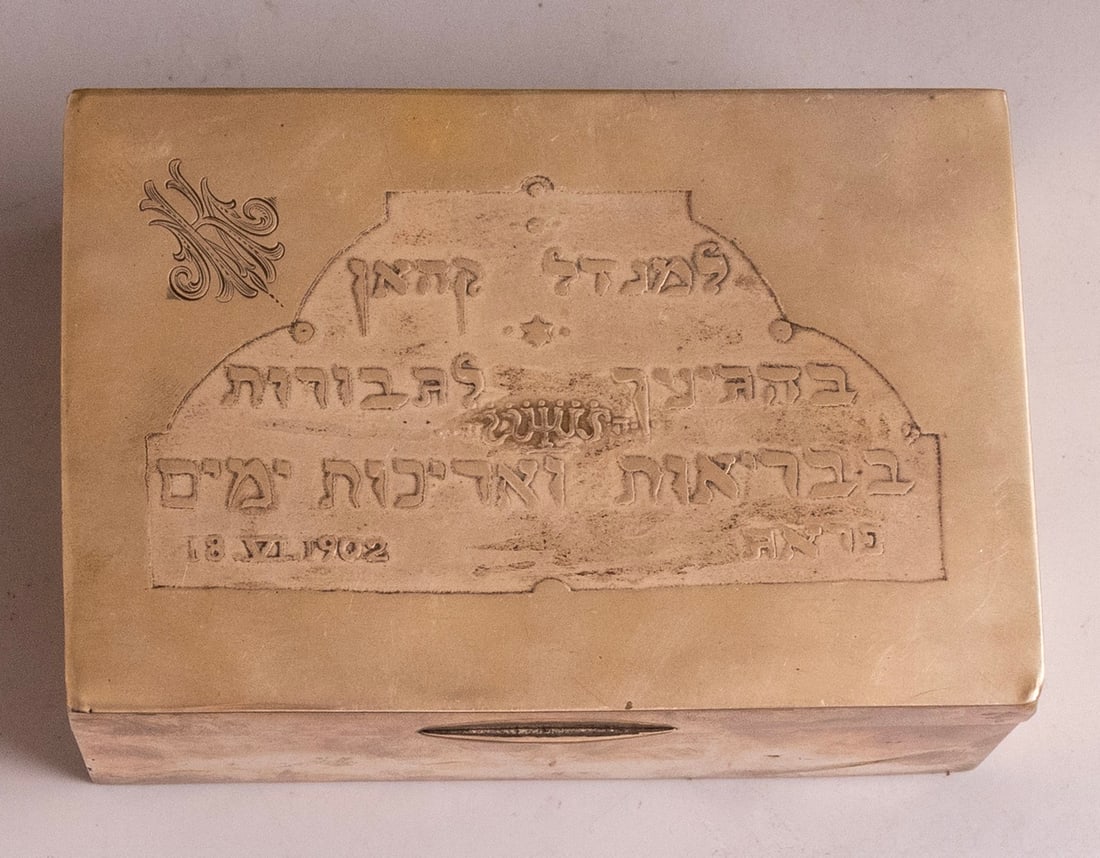 למנדל קהאן
בהגיעך לגבורות
בבריאות ואריכות ימים
פראג 18 VI 1902